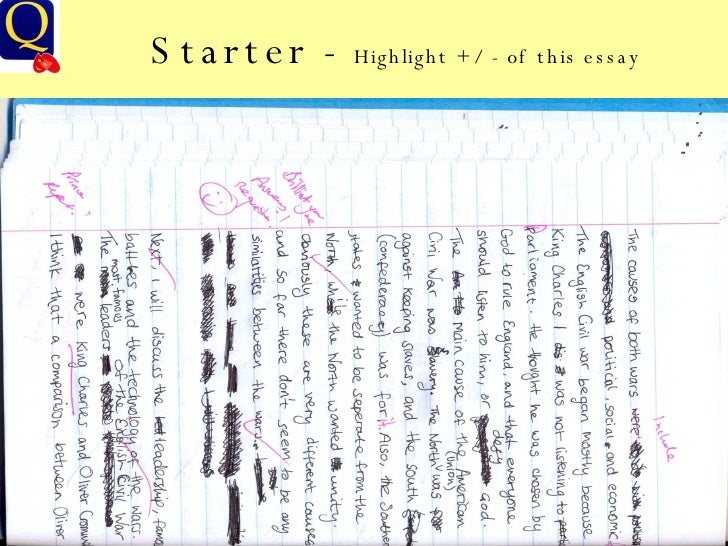 Q
Starter - Highlight +/- of this essay
Include
The causes of both wars were
political, social and economic
The English Civil war began mostly because
King Charles I was not listening to
Parliament. He thought he was chosen by
God to rule England, and that everyone
should listen to him, or defy God.
The main cause of the American
Civil War was slavery. The North (Union) was
against keeping slaves, and the south
(confederacy) was for it. Also, the Southern
states wanted to be seperate from the
North, while the North wanted unity.
Obviously these are very different causes
and so far there don't seem to be any
similarities between the wars.
Brilliant you
Answered
Question!
Next, I will discuss the leadership, famous
battles and the technology of the wars.
The most famous leaders of the English Civil War
were King Charles and Oliver Cromwell
I think that a comparison between Oliver